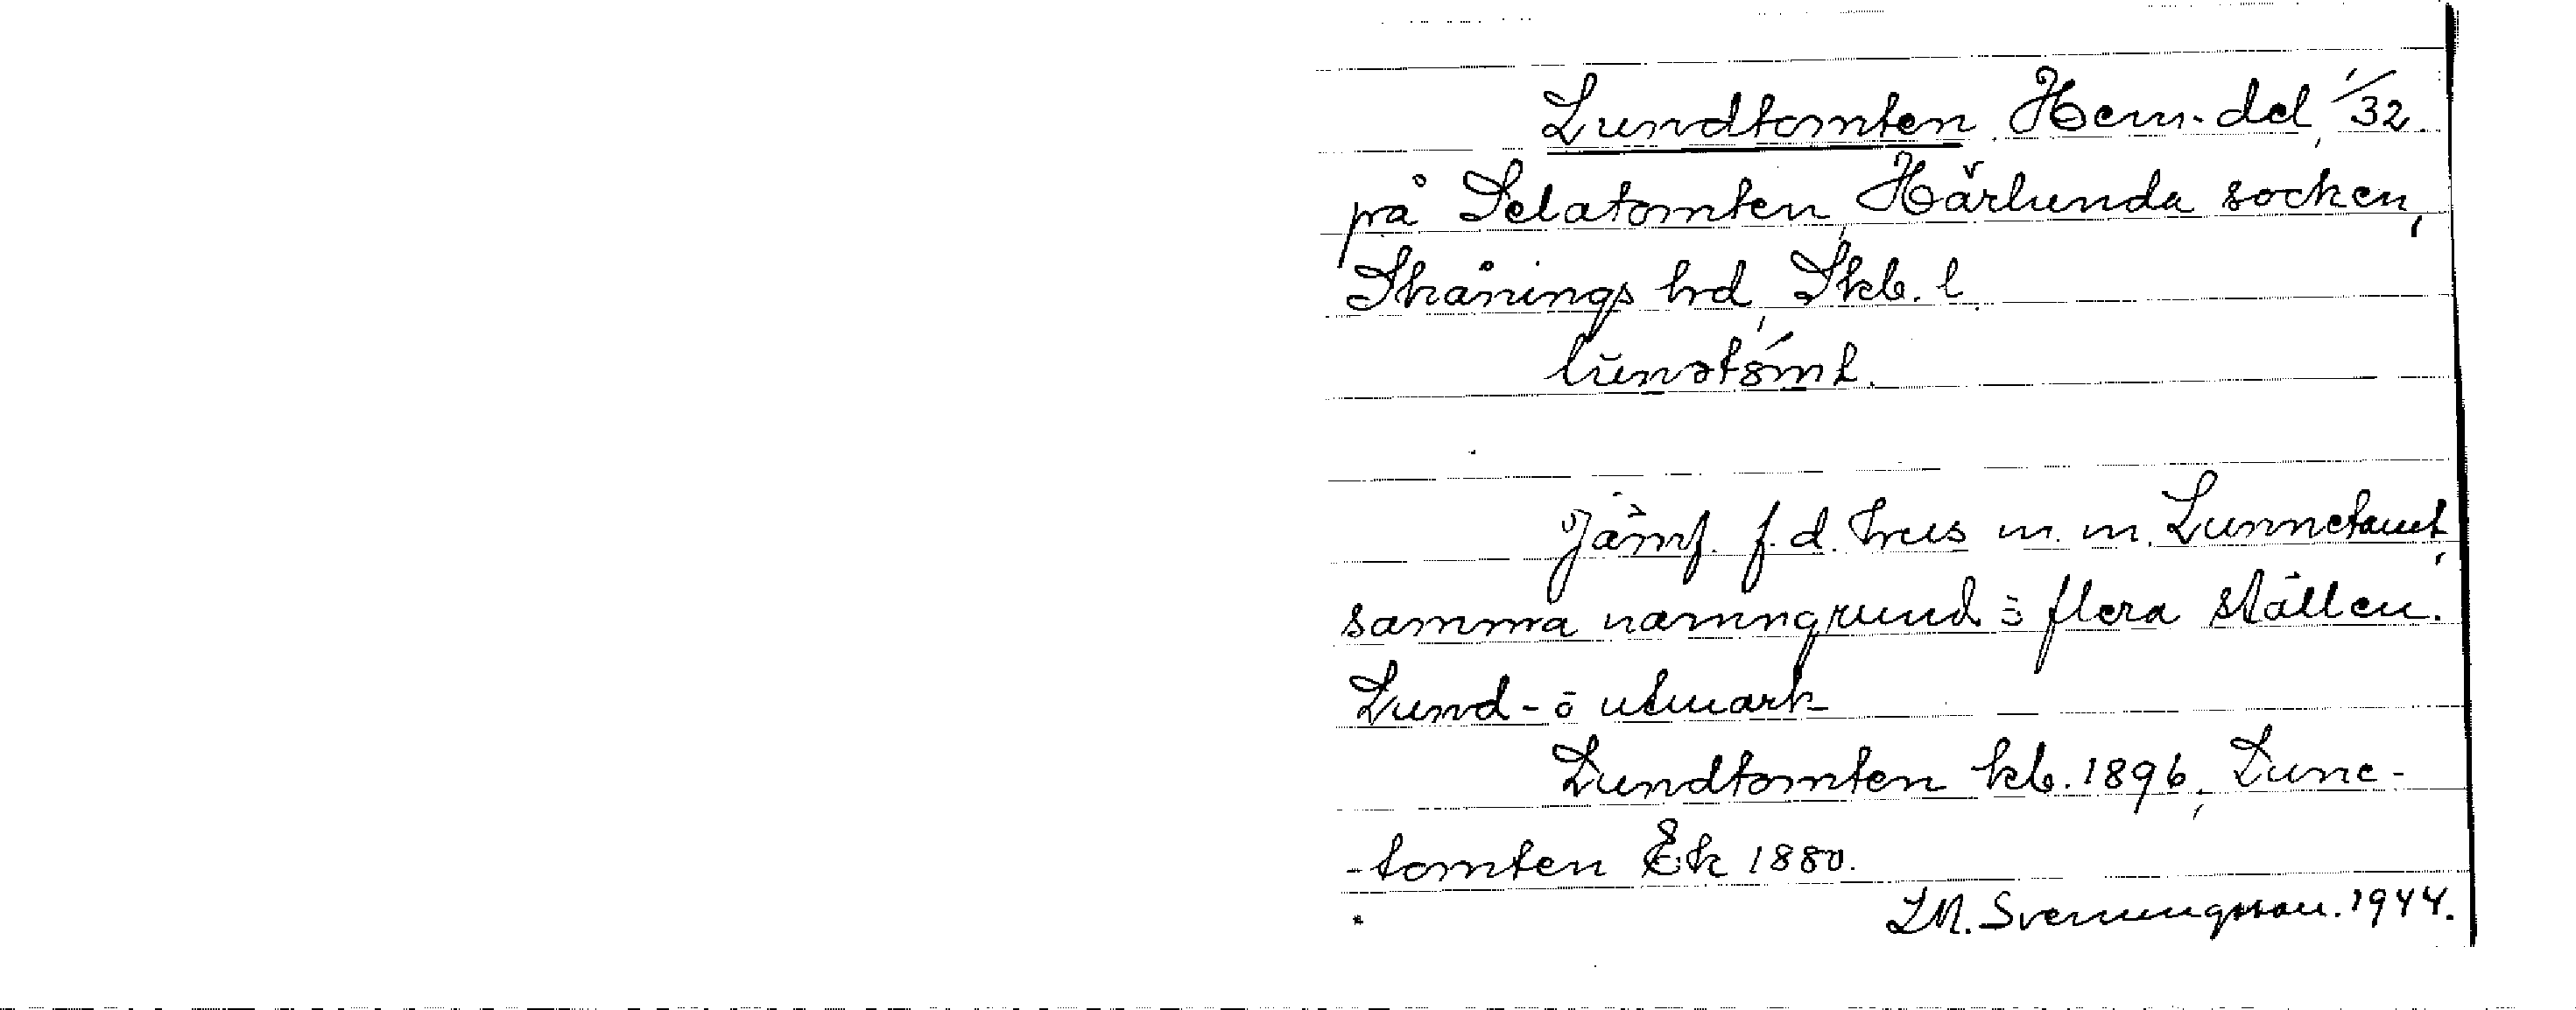 Lundtomten, Hem. del, 1/32.
på Selatomten, Härlunda socken,
Skånings hd, Skb. l.
Jämf. f. d. hus m. m. Lunnetomt,
samma namngrund å flera ställen.
Lund - å utmark
Lundtomten kb. 1896, Lune-
-tomten Ek 1880.
LM. Svenungsson. 1944.